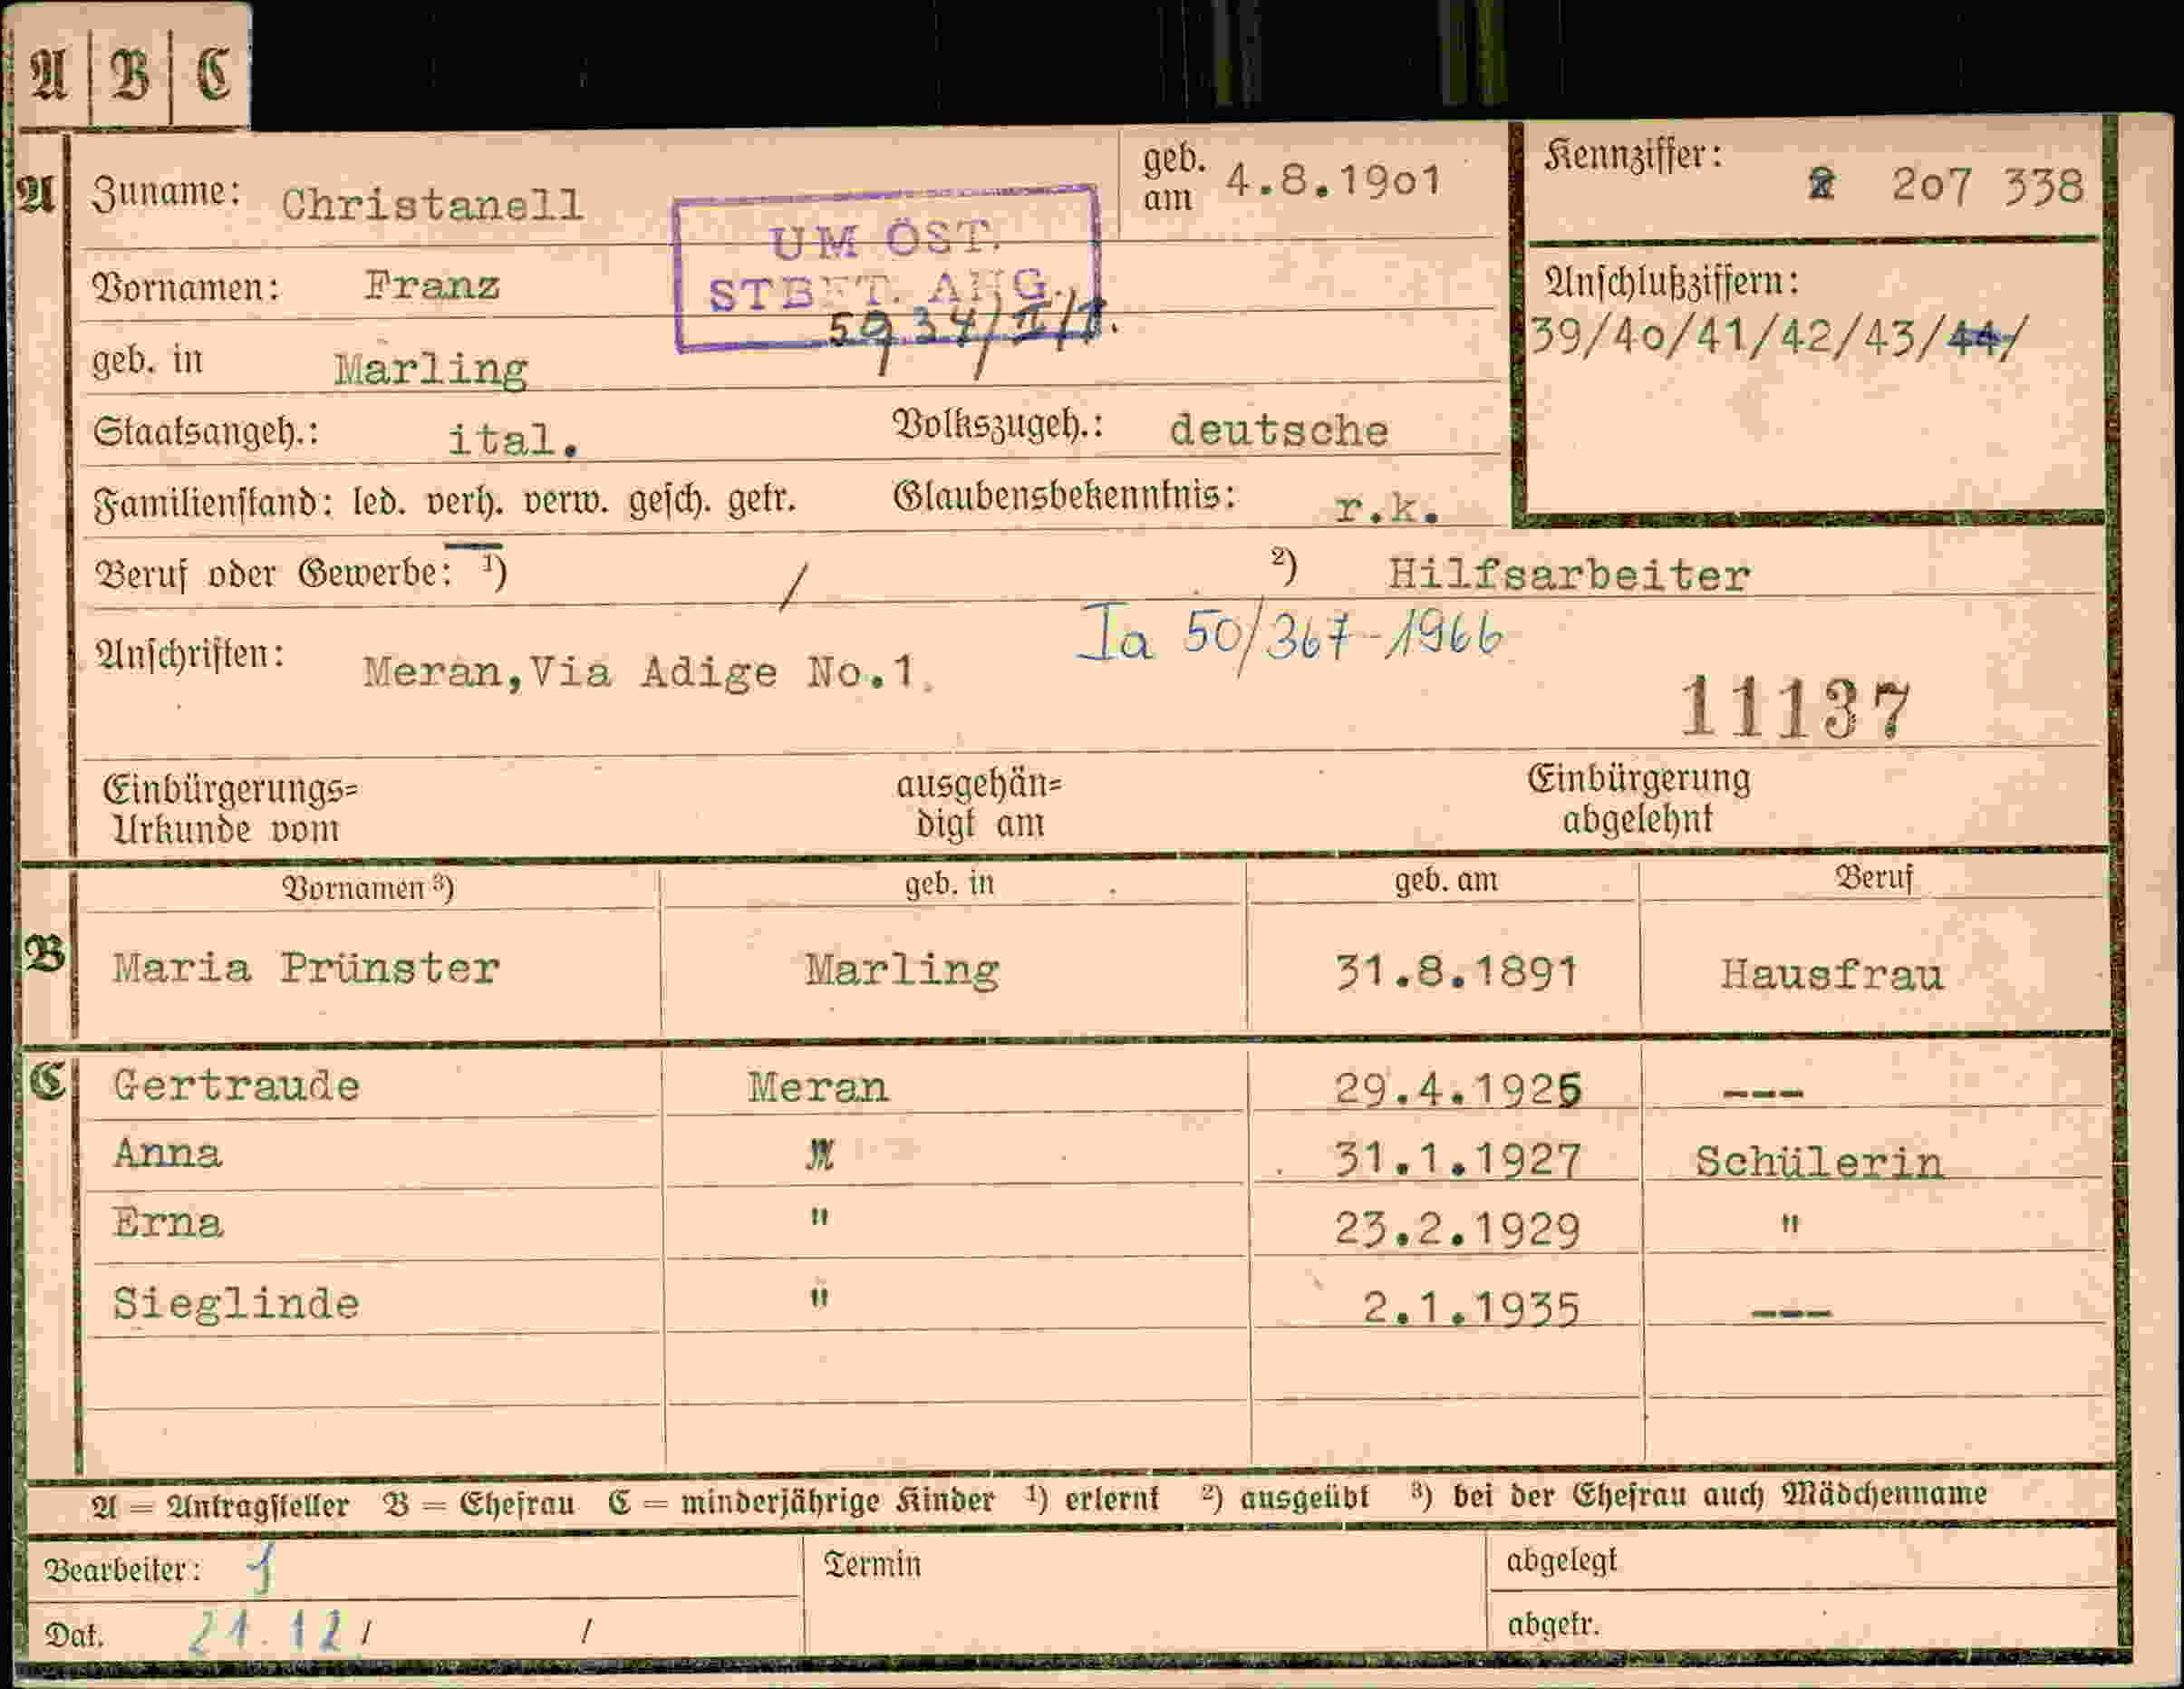 A | B | C
A
Zuname: Christanell
geb. am 4.8.1901
Kennziffer: 207 338
UM ÖST.
STBFT. ANG.
Vornamen: Franz
5934/II/1.
Anschlußziffern:
39/40/41/42/43/44/
geb. in Marling
Staatsangeh.: ital. Volkszugeh.: deutsche
Familienstand: led. verh. verw. gesch. getr. Glaubensbekenntnis: r.k.
Beruf oder Gewerbe: 1) / 2) Hilfsarbeiter
Ia 50/367-1966
Anschriften: Meran,Via Adige No.1.
11137
Einbürgerungs=
Urkunde vom
ausgehän=
digt am
Einbürgerung
abgelehnt
Vornamen 3) geb. in geb. am Beruf
B Maria Prünster Marling 31.8.1891 Hausfrau
C Gertraude Meran 29.4.1925 ---
Anna " 31.1.1927 Schülerin
Erna " 23.2.1929 "
Sieglinde " 2.1.1935 ---
A = Antragsteller B = Ehefrau C = minderjährige Kinder 1) erlernt 2) ausgeübt 3) bei der Ehefrau auch Mädchenname
Bearbeiter:
Termin
abgelegt
Dat. 21.12/ /
abgetr.